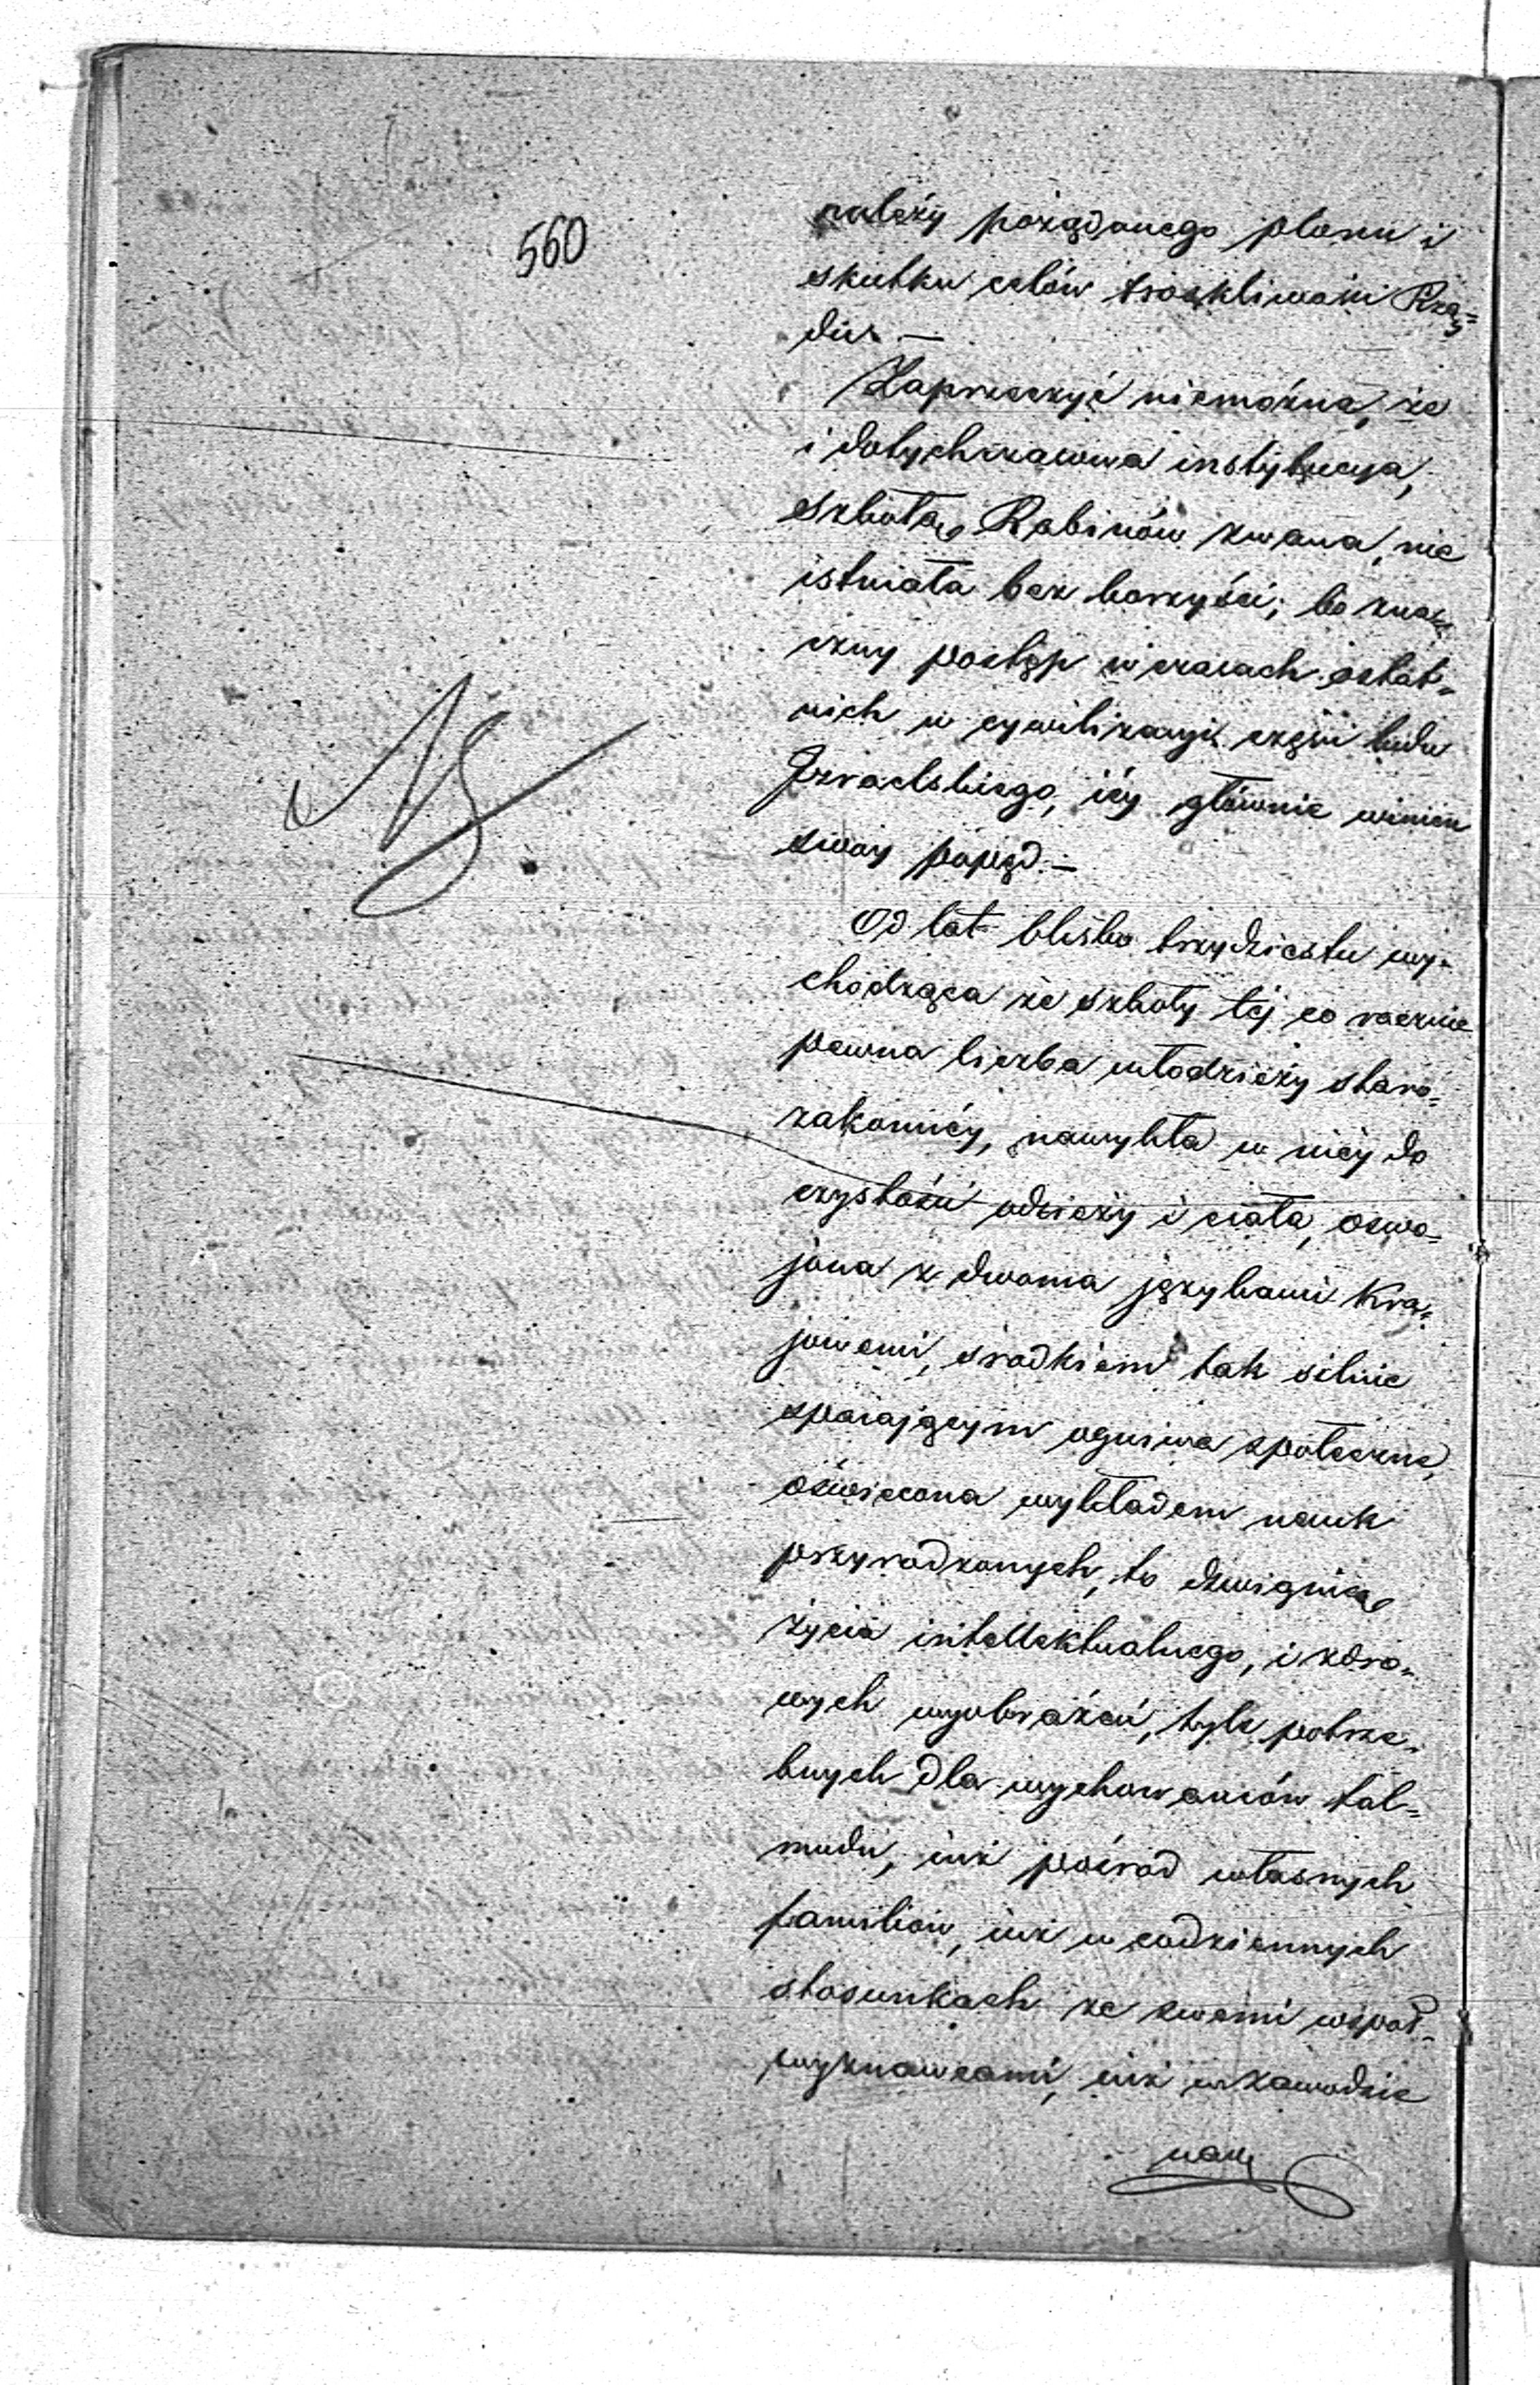 560
należy pożądanego plonu i
skutku celów troskliwości Rzą=
du. —
Zaprzeczyć niemożna, że
i dotychczasowa instytucya,
szkołą Rabinów zwana, nie
istniała bez korzyści; bo znacz
czny postęp w czasach ostat=
nich w cywilizacyi części ludu
Izraelskiego, iéy głównie winien
swoy popęd. —
Od lat blisko trzydziestu wy=
chodząca ze szkoły téj co rocznie
pewna liczba młodzieży staro=
zakonnéy, nawykła w niéy do
czystości odzieży i ciała, oswo=
jona z dwoma językami kra=
jowemi, środkiem tak silnie
spaiającym ogniwa społeczne,
oświecona wykładem nauk
przyrodzonych, tą dzwignią
życia intellektualnego, i zdro=
wych wyobrażeń, tyle potrze=
bnych dla wychowańców tal=
mudu, iuż pośród własnych
familiów, iuż w codziennych
stosunkach ze swemi współ=
wyznawcami, iuż w zawodzie
nau
NB.